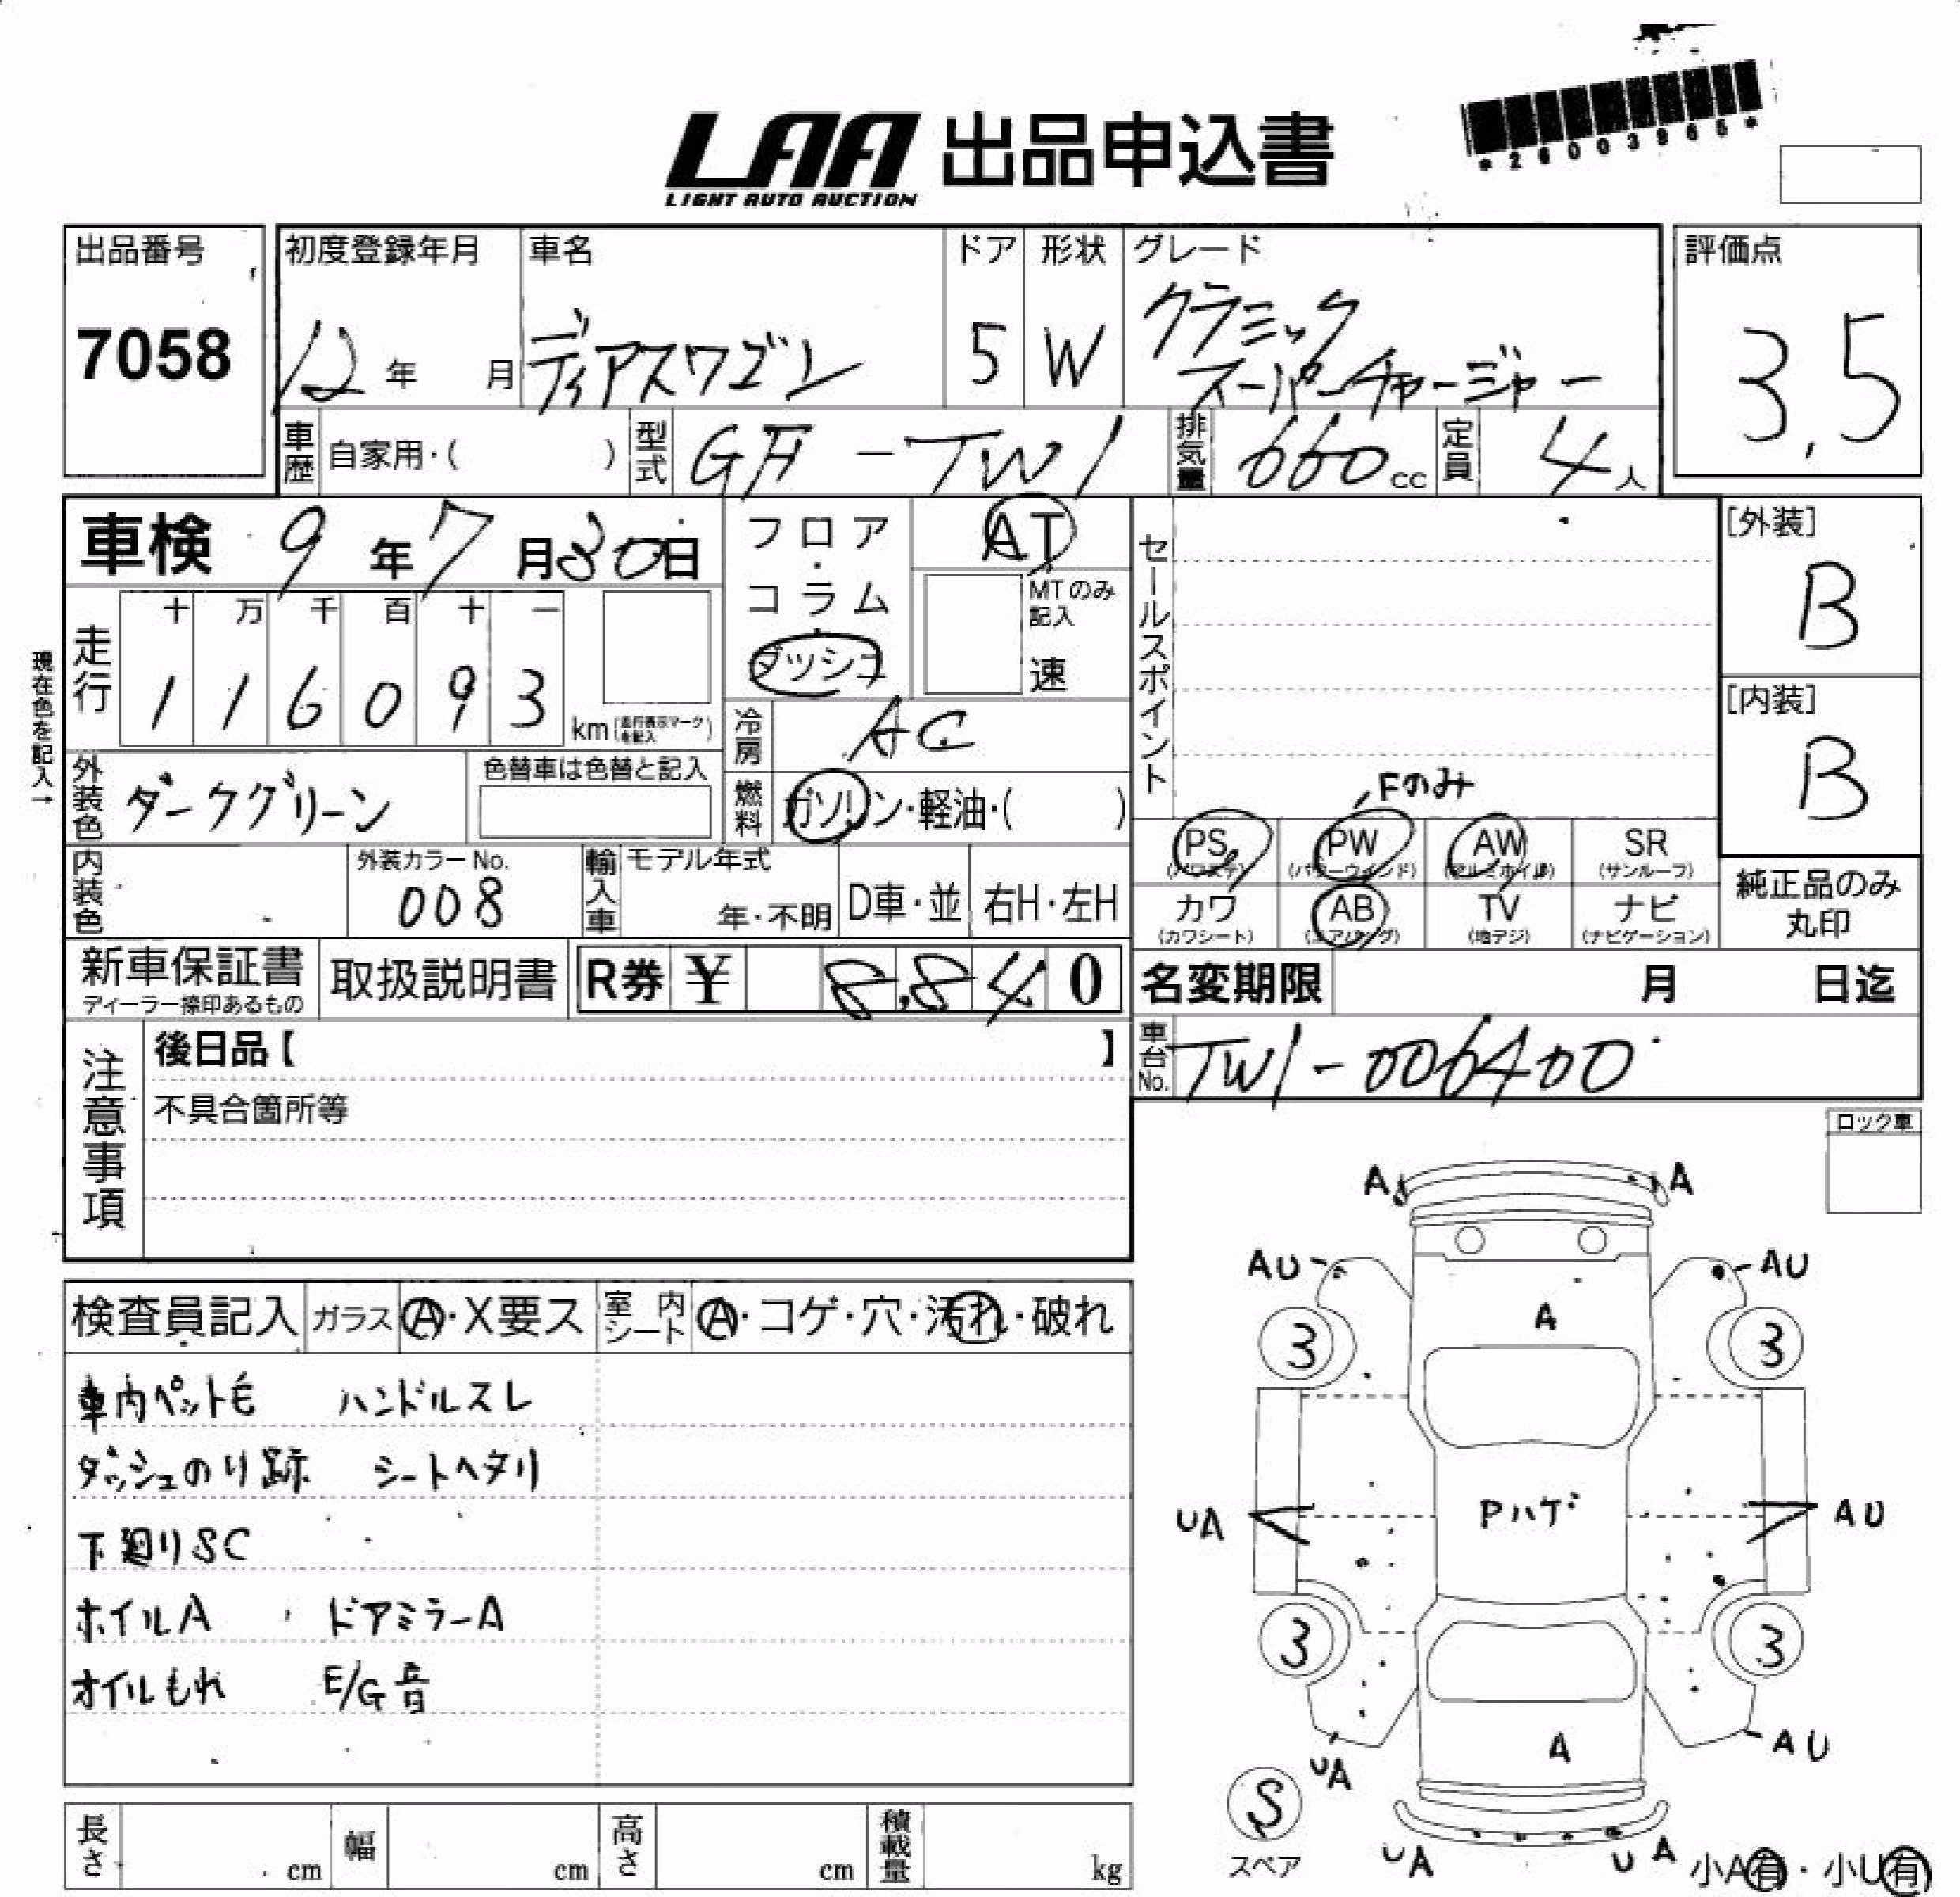 LAA 出品申込書
LIGHT AUTO AUCTION
出品番号
7058
初度登録年月
12年 月
車名
ディアスワゴン
ドア
5
形状
W
グレード
クラシック
スーパーチャージャー
評価点
3.5
車歴 自家用・( )
型式 GF-TW1
排気量 660cc
定員 4人
車検 9年7月30日
フロア・コラム・ダッシュ
AT
MTのみ記入
速
セールスポイント
[外装]
B
[内装]
B
現在色を記入→
走行 十 万 千 百 十 一
1 1 6 0 9 3 km (走行表示マークを記入)
冷房 AC
外装色 ダークグリーン
色替車は色替と記入
燃料 ガソリン・軽油・( )
Fのみ
PS PW AW SR
(パワステ) (パワーウインド) (アルミホイル) (サンルーフ)
カワ AB TV ナビ
(カワシート) (エアバッグ) (地デジ) (ナビゲーション)
純正品のみ
丸印
内装色
外装カラーNo.
008
輸入車 モデル年式
年・不明 D車・並 右H・左H
新車保証書
ディーラー捺印あるもの
取扱説明書
R券 ¥ 8,840
名変期限 月 日迄
車台No. TW1-006400
注意事項
後日品【 】
不具合箇所等
ロック車
検査員記入 ガラス A・X要ス 室内シート A・コゲ・穴・汚れ・破れ
車内ペット毛 ハンドルスレ
ダッシュのり跡 シートヘタリ
下廻りSC
ホイルA ドアミラーA
オイルもれ E/G音
A A
AU AU
A
3 3
Pハゲ
UA AU
3 3
A
UA AU
S
スペア
UA UA
小A有・小U有
長さ cm 幅 cm 高さ cm 積載量 kg